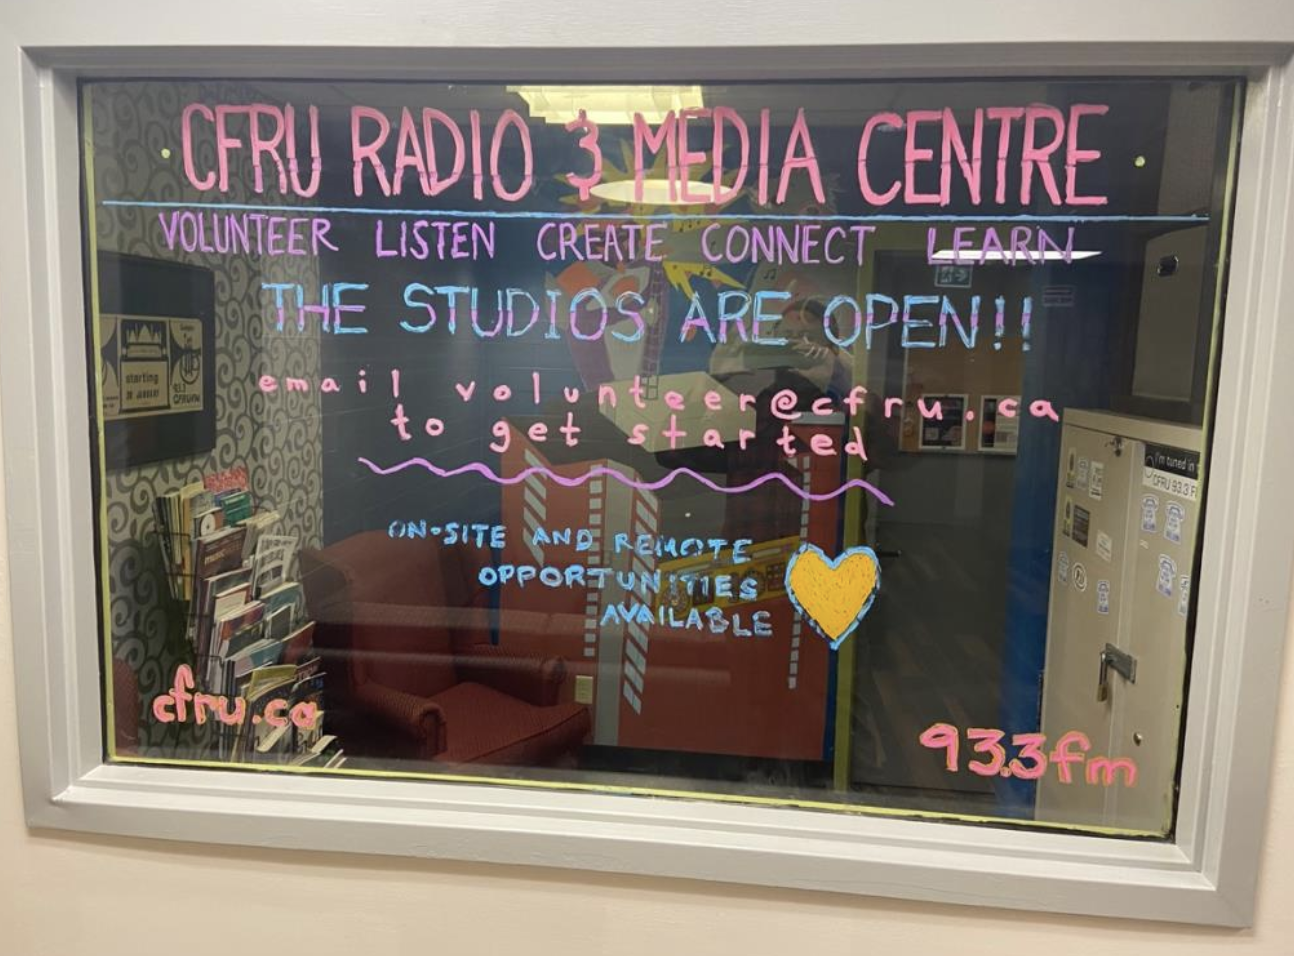 CFRU RADIO & MEDIA CENTRE
VOLUNTEER LISTEN CREATE CONNECT LEARN
THE STUDIOS ARE OPEN!!
email volunteer@cfru.ca
to get started
ON-SITE AND REMOTE
OPPORTUNITIES
AVAILABLE
cfru.ca
93.3fm
starting
I'm tuned in
CFRU 93.3 F